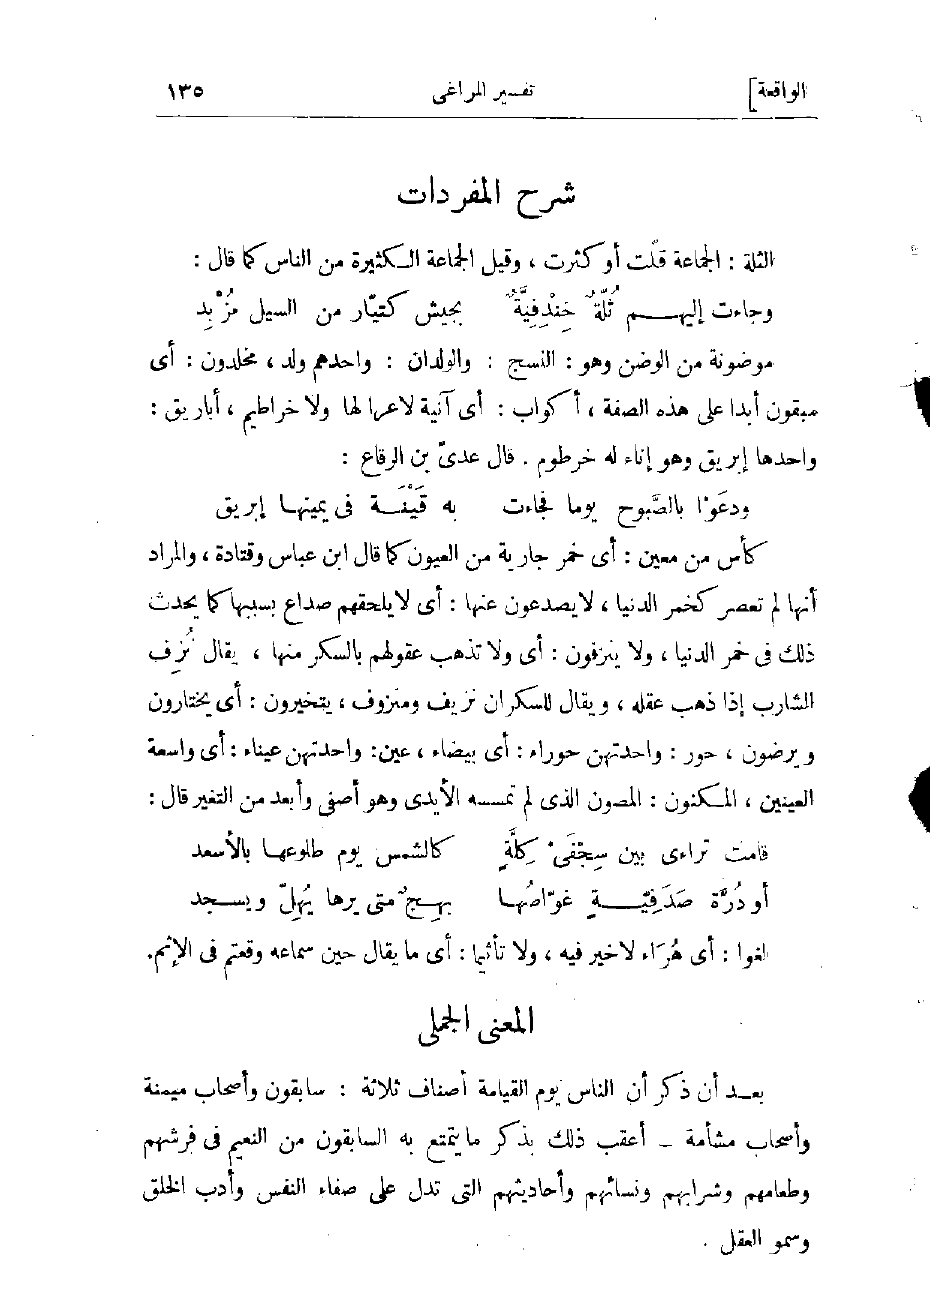 الواقعة] تفسير المراغى ١٣٥
شرح المفردات
الثلة : الجماعة قلّت أو كثرت ، وقيل الجماعة الكثيرة من الناس كما قال :
وجاءت إليهم ثُلّةٌ خِنْدِفِيَّةٌ بجيش كتيّار من السيل مُزْبِد
موضونة من الوضن وهو : النسج : والولدان : واحدهم ولد ، مخلدون : أى
مبقون أبدا على هذه الصفة ، أكواب : أى آنية لاعرا لها ولا خراطيم ، أباريق :
واحدها إبريق وهو إناء له خرطوم . قال عدىّ بن الرقاع :
ودعَوْا بالصَّبوح يوما فجاءت به قَيْنَة فى يمينها إبريق
كأس من معين : أى خمر جارية من العيون كما قال ابن عباس وقتادة ، والمراد
أنها لم تعصر كخمر الدنيا ، لايصدعون عنها : أى لايلحقهم صداع بسببها كما يحدث
ذلك فى خمر الدنيا ، ولا ينزفون : أى ولا تذهب عقولهم بالسكر منها ، يقال نُزِف
الشارب إذا ذهب عقله ، ويقال للسكران نزيف ومنزوف ، يتخيرون : أى يختارون
ويرضون ، حور : واحدتهن حوراء : أى بيضاء ، عين: واحدتهن عيناء : أى واسعة
العينين ، المكنون : المصون الذى لم تمسسه الأيدى وهو أصفى وأبعد من التغير قال :
قامت تراءى بين سِجْفَىْ كِلَّةٍ كالشمس يوم طلوعها بالأسعد
أو دُرَّة صَدَفِيّةٍ غوّاصُها بهِجٌ متى يرها يُهِلّ ويسجد
لغوا : أى هُرَاء لاخير فيه ، ولا تأثيما : أى مايقال حين سماعه وقعتم فى الإثم.
المعنى الجملى
بعد أن ذكر أن الناس يوم القيامة أصناف ثلاثة : سابقون وأصحاب ميمنة
وأصحاب مشأمة – أعقب ذلك بذكر مايتمتع به السابقون من النعيم فى فرشهم
وطعامهم وشرابهم ونسائهم وأحاديثهم التى تدل على صفاء النفس وأدب الخلق
وسمو العقل .